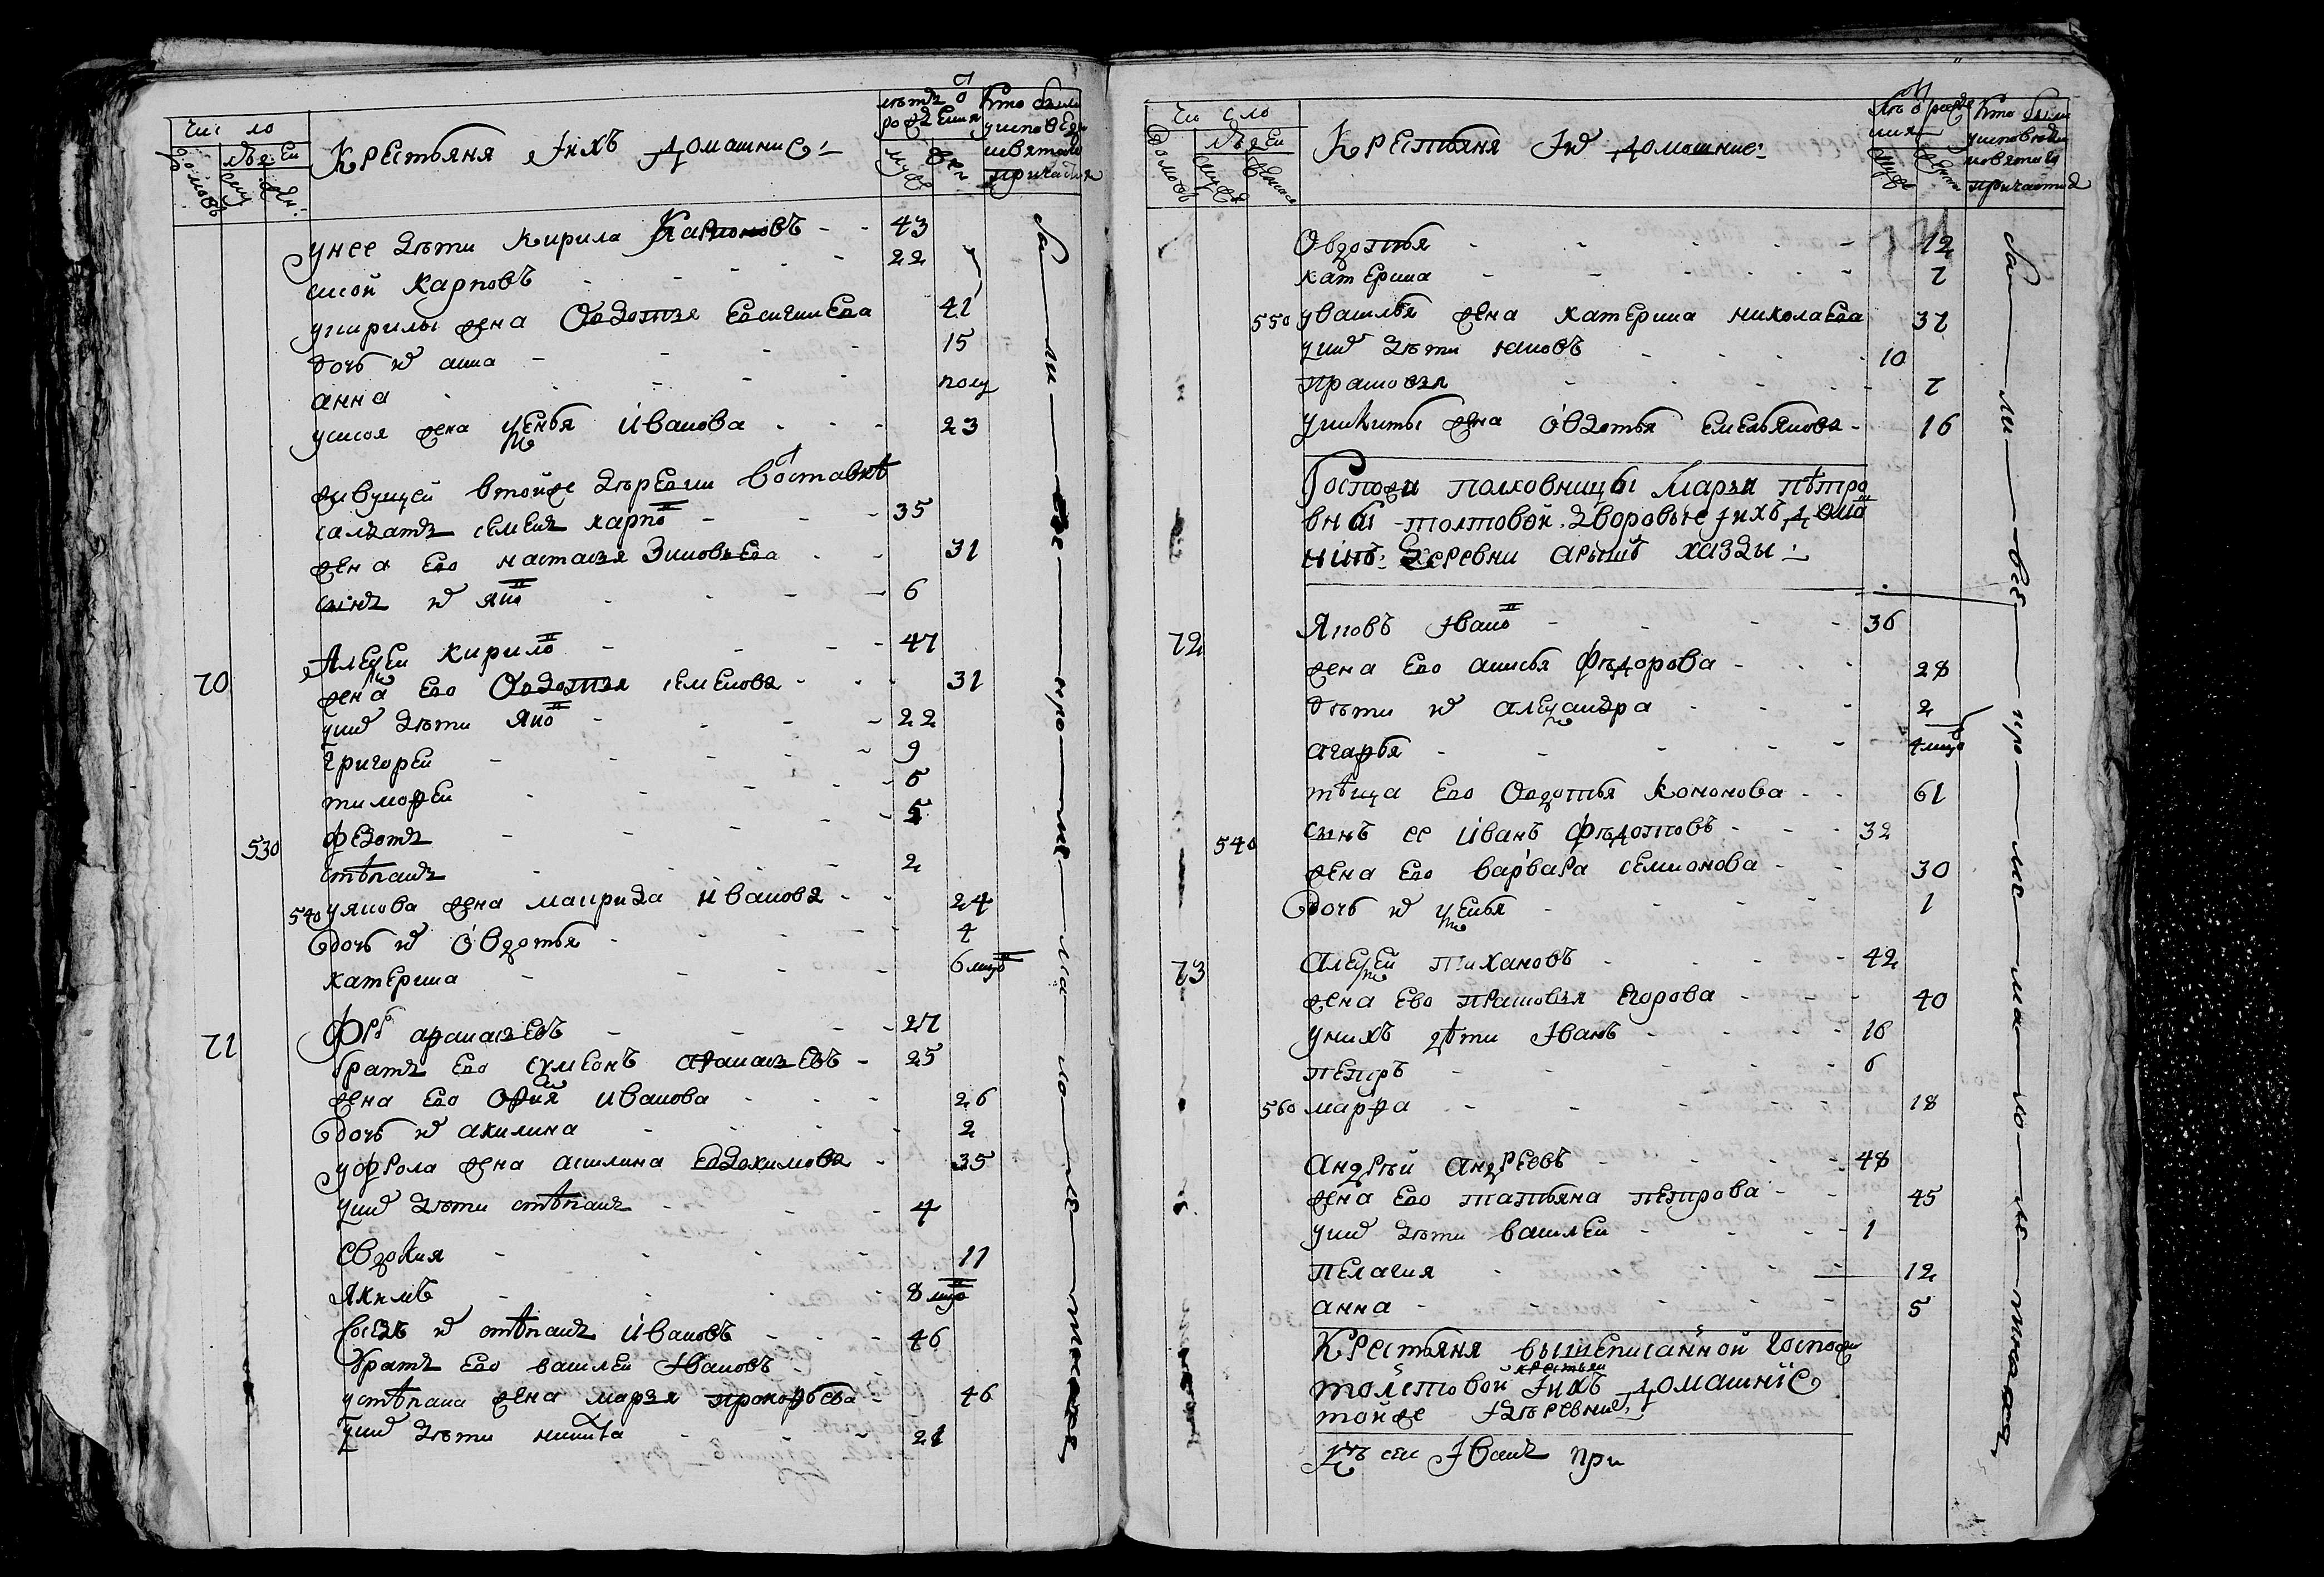 Число
домовъ
людей
муж
жен:
Крестьяня и ихъ домашние
лѣтъ о рождения
муж
жен
кто были у исповеди и святаго причастия
унее дѣти Кирила Карповъ - - 43
сисой карповъ 22
укирилы жена Овдотья Евсигнеева 41
дочь их анна 15
анна полу
усисоя жена ксенья Иванова 23
живущей втойже деревни вотставке
салдатъ семенъ карпов 35
жена ево настасья Зиновьева 31
сынъ их яков 6
70 Алексеи кирилов 47
жена ево Овдотья семенова 31
у них дѣти яков 22
Григореи 9
тимофеи 6
530 федотъ 5
степанъ 2
540 уякова жена маврида иванова 24
дочь их Овдотья 4
катерина 6 мцов
71 Фрол афанасьевъ 27
братъ ево сумеонъ афанасьевъ 25
жена ево софия иванова 26
дочь их акилина 2
уфрола жена акилина Евдокимова 35
у них дѣти степанъ 4
Евдокия 11
Якимъ 8 мцов
сосѣдъ их степанъ ивановъ 46
братъ ево василеи Ивановъ
устепана жена марья прокофьева 46
у них дѣти никита 21
были все кро ме ма ло ле тных
Число
домовъ
людей
мужеск
женск
Крестьяня и их домашние
лѣтъ о рождения
мужес
женск
кто были у исповеди и святаго причастия
Овдотья 12
катерина 7
550 увасилья жена катерина николаева 37
у них дѣти яковъ 10
прасковья 7
уникиты жена Овдотья емельянова 16
Госпожи полковницы Марьи пѣтро
вны толстовой дворовые и ихъ дома
шние деревни арышъ хазды
72 Яковъ Иванов 36
жена ево анисья федорова 28
дѣти их александра 2
агафья 4 мцов
тѣща ево Овдотья кононова 61
540 сынъ ее Иванъ федотовъ 32
жена ево варвара семионова 30
дочь их ксенья 1
73 алексеи тихановъ 42
жена ево прасковья егорова 40
унихъ дѣти Иванъ 16
петръ 6
560 марфа 18
андрѣй андреевъ 48
жена ево татьяна петрова 45
у них дѣти василеи 1
пелагия 12
анна 5
Крестьяня вышеписанной госпожи
толстовой крестьян и ихъ домашние
тойже деревни
Иванъ при
были все кро ме ма ло ле тных